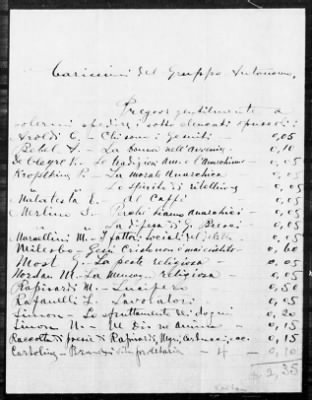 Carissimi del Gruppo Autonomo,
Pregovi gentilmente a
volermi spedire i sotto elencati opuscoli:
C. - Chi sono i 0,05
Bebel A. - La donna nell'avvenire 0,10
De Negro L. - Le tradizioni e l'anarchismo - 0,05
Kropotkine P. - La morale anarchica 0,05
" " - Lo spirito di ribellione 0,05
Malatesta E. - Al Caffè 0,05
Merlino S. - Perchè siamo anarchici - 0,05
" " - La difesa di G. Bresci 0,05
Marcellini M. - I fattori sociali del 0,05
- Gesù Cristo non è mai esistito - 0,60
Most G. - La peste religiosa 0,05
Nordau M. - La menzogna religiosa - 0,05
Rapisardi M. - Lucifero - 0,50
Rafanelli L. - Lavoratori - 0,05
Simon - Lo sfruttamento dei sogni 0,20
Simon N. - Un Dio 0,15
Raccolta di poesie di Rapisardi, Negri, Carducci, ecc. 0,15
Cartoline - - 4 - 0,10
2,35